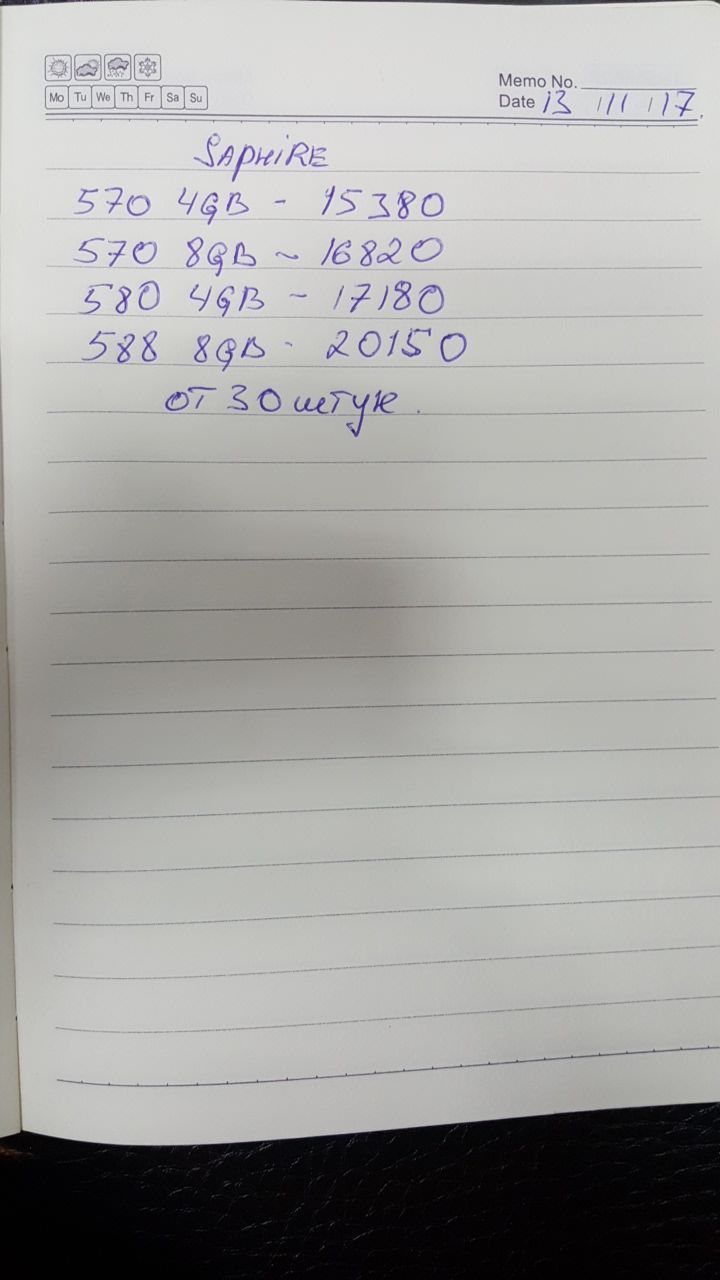 Memo No.
Mo Tu We Th Fr Sa Su
Date 13 / 11 / 17.
SAPHIRE
570 4GB - 15380
570 8GB ~ 16820
580 4GB - 17180
588 8GB - 20150
от 30 штук.